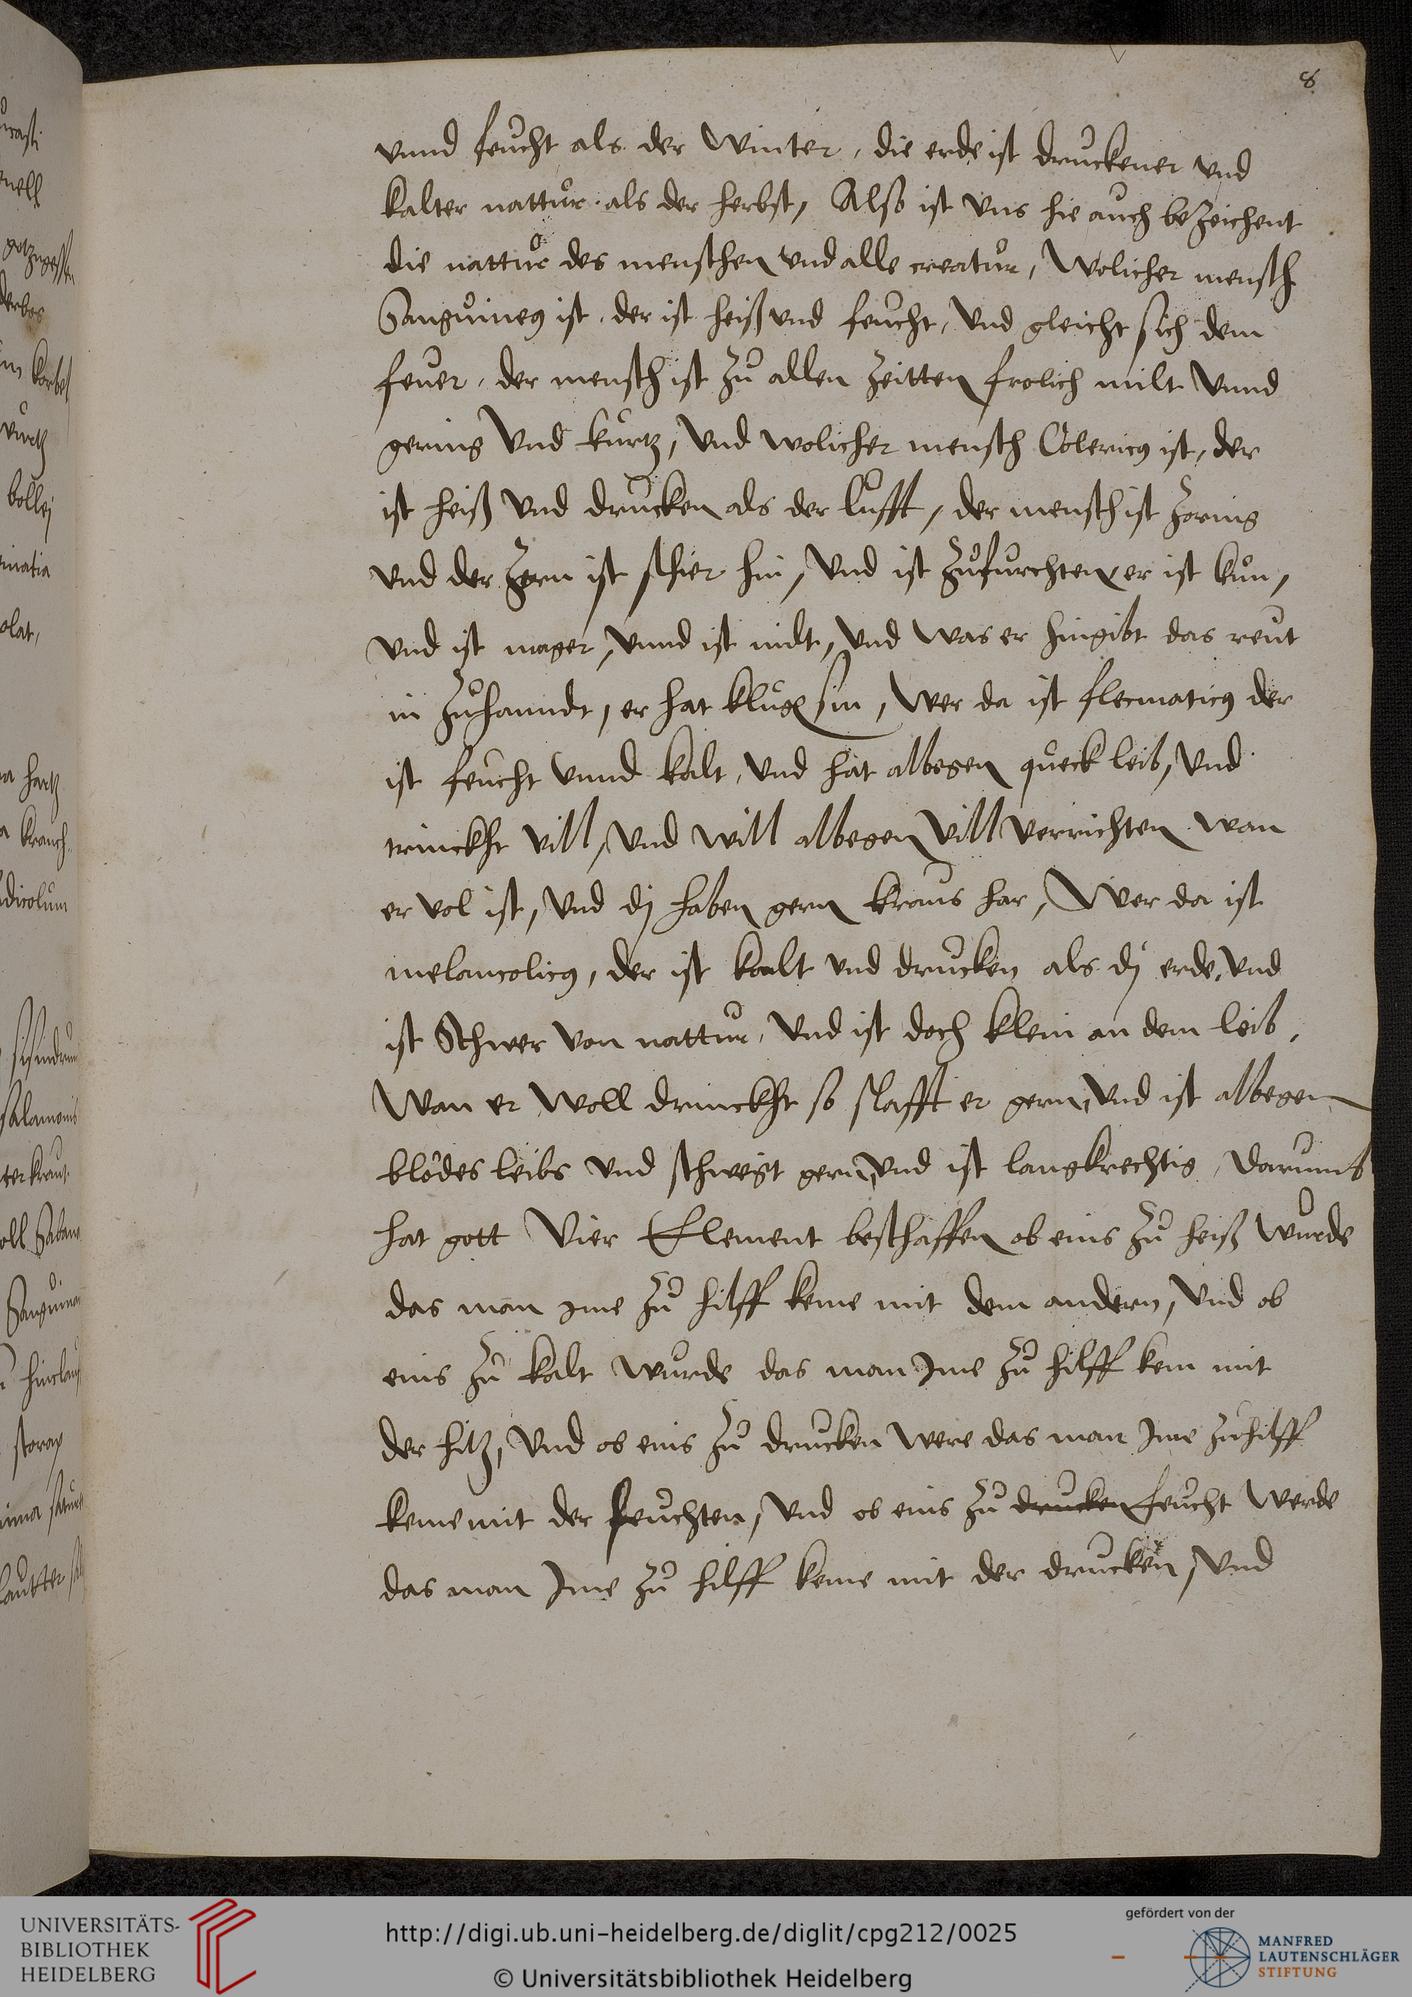 8
vnnd feucht als der Winter, die erde ist druckener vnd
kalter nattur als der herbst, Also ist vns hie auch bezeichent
die nattur des menschen vnd alle creatur, Wolicher mensch
Sanguineus ist der ist heiß vnd feucht, vnd gleicht sich dem
feuer, der mensch ist zu allen zeitten frolich milt vnnd
gering vnd kurtz, vnd wolicher mensch Colericus ist, der
ist heiß vnd drucken als der lufft, der mensch ist zornig
vnd der zorn ist schier hin, vnd ist zufurchten er ist kun,
vnd ist mager, vnnd ist milt, vnd was er hingibt das reut
in zuhanndt, er hat klug sin, Wer da ist flecmaticus der
ist feucht vnnd kalt, vnd hat albegen queck leib, vnd
trinckht vill, vnd will albegen vill verrichten wan
er vol ist, vnd dj haben gern kraus har, Wer da ist
melancolicus, der ist kalt vnd drucken als dj erde, vnd
ist Schwer von nattur, vnd ist doch klein an dem leib,
Wan er woll drinckht so slafft er gern, vnd ist albegen
blodes leibs vnd schweigt gern, vnd ist langkrechtig, darumb
hat gott Vier Element beschaffen ob eins zu heiß wurde
das man ime zu hilff keme mit dem andern, vnd ob
eins zu kalt wurde das man Ime zu hilff kem mit
der hitz, vnd ob eins zu drucken were das man Ime zuhilff
keme mit der feuchten, vnd ob eins zu drucken feucht werde
das man Ime zu hilff keme mit der drucken, vnd
UNIVERSITÄTS-
BIBLIOTHEK
HEIDELBERG
http://digi.ub.uni-heidelberg.de/diglit/cpg212/0025
© Universitätsbibliothek Heidelberg
gefördert von der
MANFRED
LAUTENSCHLÄGER
STIFTUNG